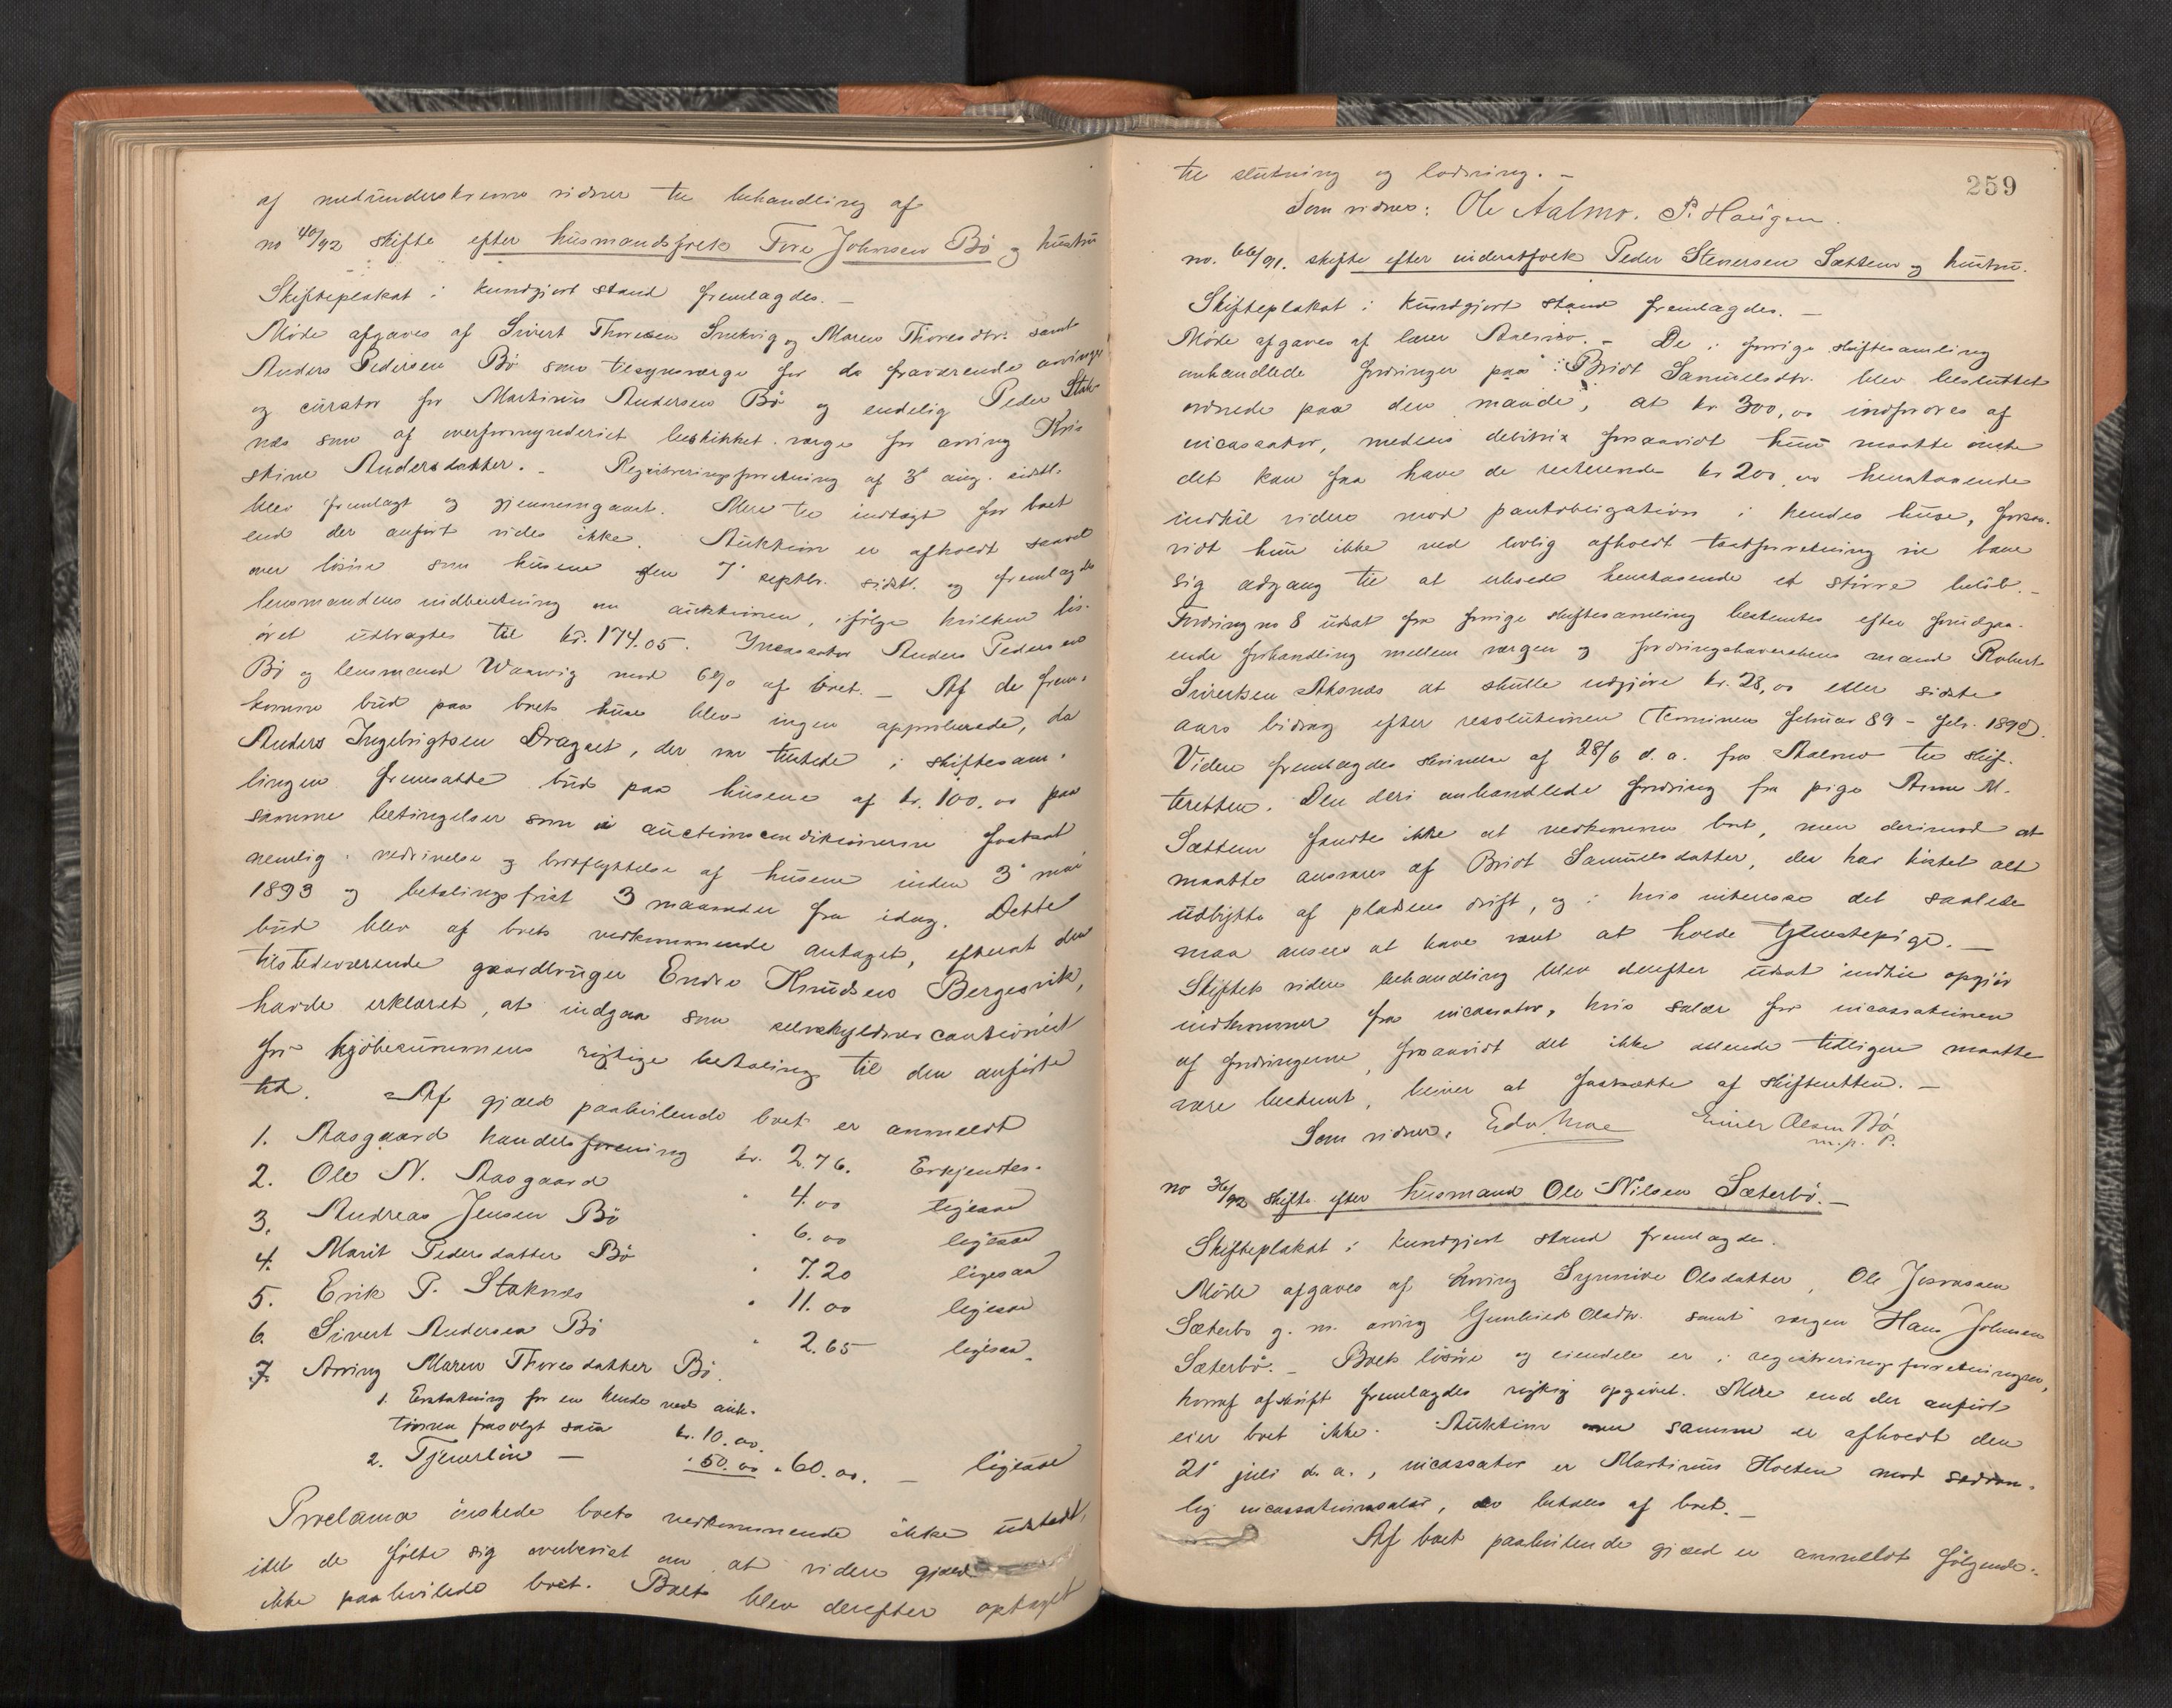 af medunderskrevne vidner til behandling af
no 40/92 skifte efter husmandsfolk Tore Johnsen Bö og hustru
Skifteplakat i kundgjort stand fremlagdes. –
Möde afgaves af Sivert Thoresen og Maren Thoresdtr. samt
Anders Pedersen Bö som tilsynsværge for de fraværende arvinger
og curator for Martinus Andersen Bö og endelig Peder Stak-
næs som af overformynderiet beskikket værge for arving Kri-
stine Andersdatter. – Registreringsforretning af 3' aug. sidstl.
blev fremlagt og gjennemgaaet. Mere til indtægt for boet
end der anfört vides ikke. Auktion er afholdt saavel
over lösöre som husene den 7' septbr. sidstl. og fremlagdes
lensmandens indberetning om auktionen, ifölge hvilken lös-
öret udbragtes til kr. 174.05. Incassator Anders Pedersen
Bö og lensmand Waarvig mod 6% af boet. – Af de frem-
komne bud paa boets huse blev ingen approberede, da
Anders Ingebrigtsen Draget, der var tilstede i skiftesam-
lingen fremsatte bud paa husene af kr. 100.00 paa
samme betingelser som i auctionsconditionerne fastsat
nemlig: nedrivelse og bortflyttelse af husene inden 3' mai
1893 og betalingsfrist 3 maaneder fra idag. Dette
bud blev af boets vedkommende antaget, efterat den
tilstedeværende gaardbruger Endre Knudsen Bergesvik,
havde erklæret, at indgaa som selvskyldnercautionist
for kjöbesummens rigtige betaling til den anförte
tid. Af gjæld paahvilende boet er anmeldt
1. Aasgaard handelsforening kr. 2.76. Erkjentes.
2. Ole N. Aasgaard " 4.00 ligesaa
3. Andreas Jensen Bö " 6.00 ligesaa
4. Marit Pedersdatter Bö " 7.20 ligesaa
5. Erik P. Staknes " 11.00 ligesaa
6. Sivert Andersen Bö " 2.65 ligesaa.
7. Arving Maren Thoresdatter Bö.
1. Erstatning for en hende ved auk-
tionen frasolgt sau kr. 10.00.
2. Tjenerlön – " 50.00 " 60.00. – ligesaa
Proclama önskede boets vedkommende ikke udstedt,
idet de fölte sig overbevist om at videre gjæld
ikke paahvilede boet. Boet blev derefter optaget
259
til slutning og lodning. –
Som vidner: Ole Aalmo. P. Haugen.
no. 66/91. skifte efter inderstfolk Peder Stenersen Sættem og hustru.
Skifteplakat i kundgjort stand fremlagdes. –
Möde afgaves af lærer Aalmo. – De i forrige skiftesamling
omhandlede fordringer paa Bridt Samuelsdtr. blev besluttet
ordnede paa den maade, at kr 300,00 indfordres af
incassator, medens debitrix forsaavidt hun maatte önske
det kan faa have de resterende kr 200,00 henstaaende
indtil videre mod pantobligation i hendes huse, forsaa-
vidt hun ikke ved lovlig afholdt taxtforretning vil bane
sig adgang til at erholde henstaaende et större belöb. –
Fordring no 8 udsat fra forrige skiftesamling bestemtes efter forudgaa-
ende forhandling mellem værgen og fordringshaverskens mand Robert
Sivertsen Aksnæs at skulle udgjöre kr. 28,00 eller sidste
aars bidrag efter resolutionen (terminen februar 89 – febr. 1890).
Videre fremlagdes skrivelse af 28/6 d. a. fra Aalmo til skif-
teretten. Den deri omhandlede fordring fra pige Anne M.
Sættem fandtes ikke at vedkomme boet, men derimod at
maatte ansvares af Bridt Samuelsdatter, der har höstet alt
udbytte af pladsens drift, og i hvis interesse det saaledes
maa ansees at have været at holde tjenestepige. –
Skiftets videre behandling blev derefter udsat indtil opgjör
indkommer fra incassator, hvis salær for incassationen
af fordringerne, forsaavidt det ikke allerede tidligere maatte
være bestemt, bliver at fastsætte af skifteretten. –
Som vidner: Edv. Moe Einer Olsen Bö
m. p. P.
no 36/92 skifte efter husmand Ole Nilsen Sæterbö. –
Skifteplakat i kundgjort stand fremlagdes.
Möde afgaves af arving Synnöve Olsdatter, Ole
Sæterbö g. m. arving Gunhild Olsdtr. samt værgen Hans Johnsen
Sæterbö. – Boets lösöre og eiendele er i registreringsforretningen,
hvoraf afskrift fremlagdes rigtig opgivet. Mere end der anfört
eier boet ikke. Auktion over samme er afholdt den
21' juli d. a., incassator er Martinus Holten mod sædvan-
lig incassationssalær, der betales af boet. –
Af boet paahvilende gjæld er anmeldt fölgende: